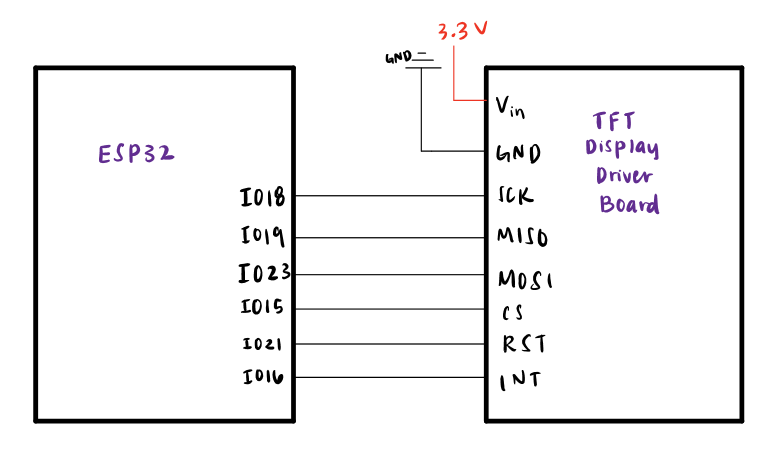 3.3V
GND
ESP32
IO18
IO19
IO23
IO15
IO21
IO16
Vin
GND
SCK
MISO
MOSI
CS
RST
INT
TFT
Display
Driver
Board